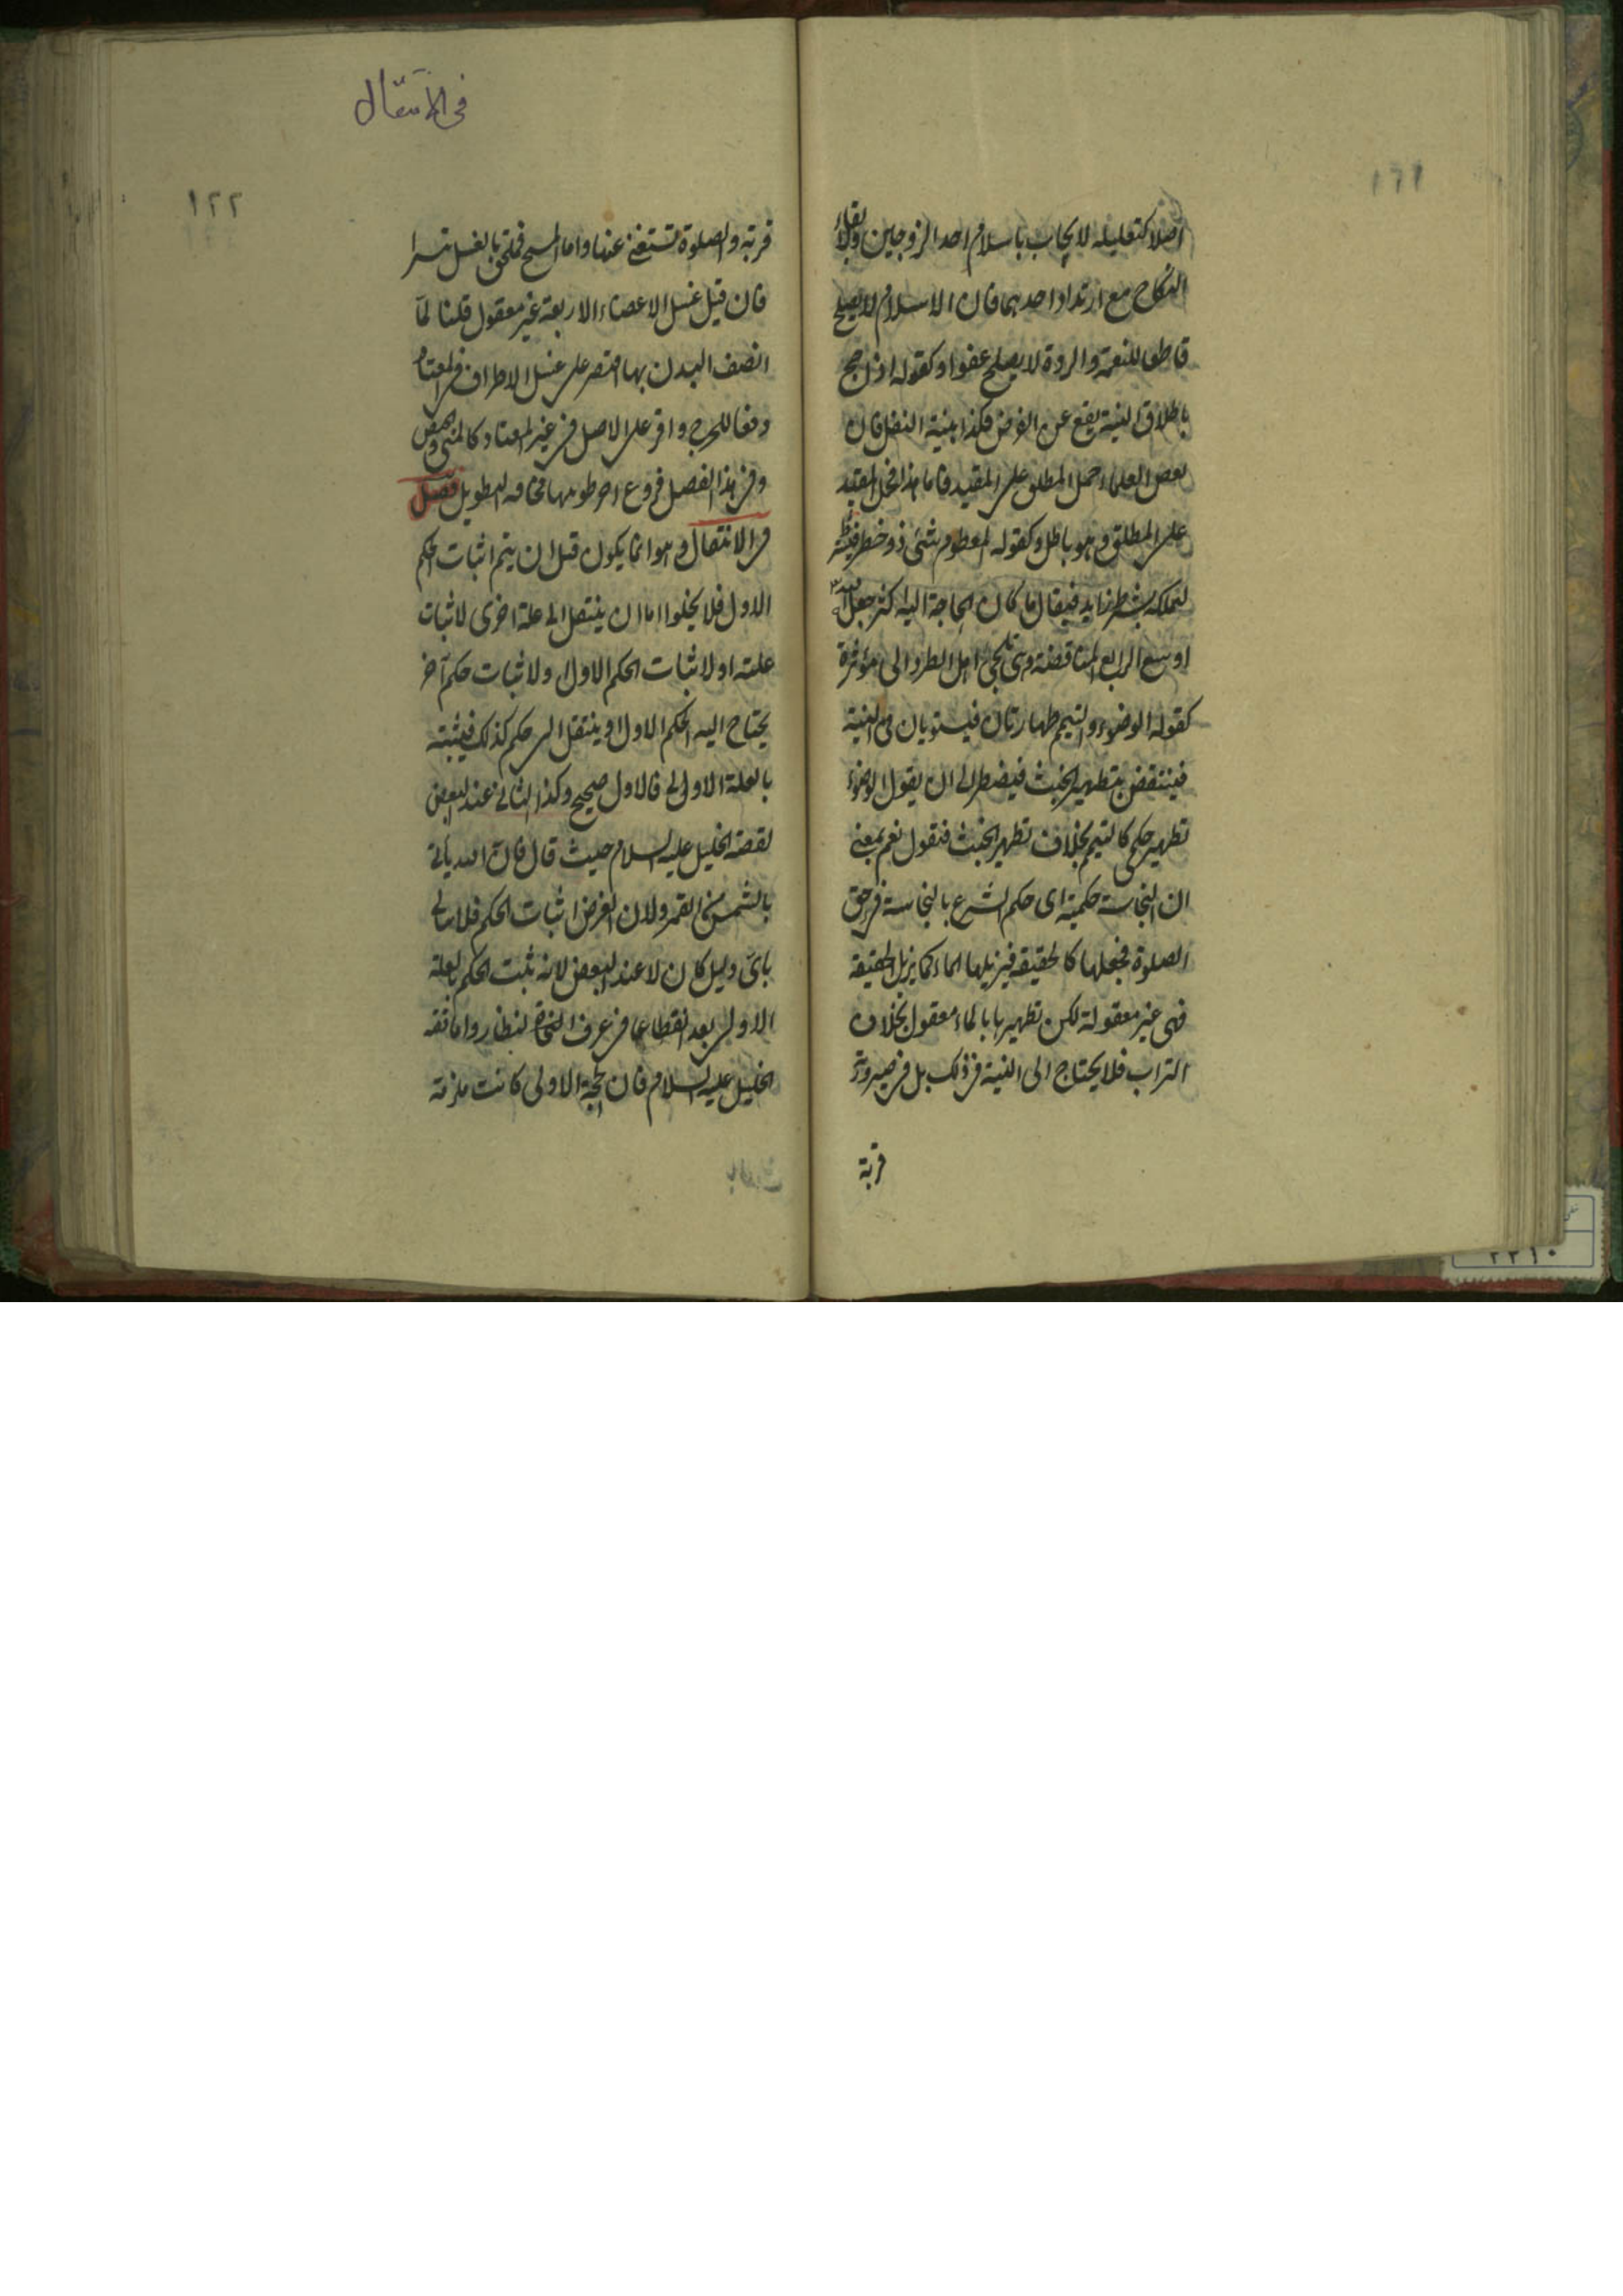 ١٢١
اصلا كتعليله لايجاب باسلام احد الزوجين ولابقاء
النكاح مع ارتداد احدهما فان الاسلام لا يصلح
قاطعا للنعمة والردة لا يصلح عفوا وكقوله اذا حج
باطلاق النية يقع عن الفرض فكذا بنية النفل فان
بعض العلماء حمل المطلق على المقيد فاما هذا فحمل المقيد
على المطلق وهو باطل وكقوله المطعوم شئ ذو خطر فيشترط
لتملكه شرط زايد فيقال ما كان الحاجة اليه اكثر جعله الله
اوسع الرابع المناقضة وهي تلجئ اهل الطرد الى مؤثرة
كقوله الوضوء والتيمم طهارتان فيستويان في النية
فينتقض بتطهير الخبث فيضطر الى ان يقول الوضوء
تطهير حكمي كالتيمم بخلاف تطهير الخبث فنقول نعم بمعنى
ان النجاسة حكمية اى حكم الشرع بالنجاسة في حق
الصلوة فجعلها كالحقيقة فيزيلها الماء كما يزيل الحقيقة
فهي غير معقولة لكن تطهيرها بالماء معقول بخلاف
التراب فلا يحتاج الى النية في ذلك بل في صيرورته
قربة
في الانتقال
١٢٢
قربة والصلوة تستغني عنها واما المسح فملحق بالغسل تيسرا
فان قيل غسل الاعضاء الاربعة غير معقول قلنا لما
اتصف البدن بها اقتصر على غسل الاطراف في المعتاد
دفعا للحرج واقر على الاصل في غير المعتاد كالمنى والحيض
وفي هذا الفصل فروع اخر طويتها مخافة التطويل فصل
في الانتقال وهو انما يكون قبل ان يتم اثبات الحكم
الاول فلا يخلوا اما ان ينتقل الى علة اخرى لاثبات
علته او لاثبات الحكم الاول او لاثبات حكم آخر
يحتاج اليه الحكم الاول او ينتقل الى حكم كذلك فيثبته
بالعلة الاولى فالاول صحيح وكذا الثاني عند البعض
لقصة الخليل عليه السلام حيث قال فان الله يأتي
بالشمس الخ القمر ولان الغرض اثبات الحكم فلا يبالي
باى دليل كان لا عند البعض لانه يثبت الحكم بالعلة
الاولى يعد انقطاعا في عرف النظار واما قصة
الخليل عليه السلام فان الحجة الاولى كانت ملزمة
٢٢١٠